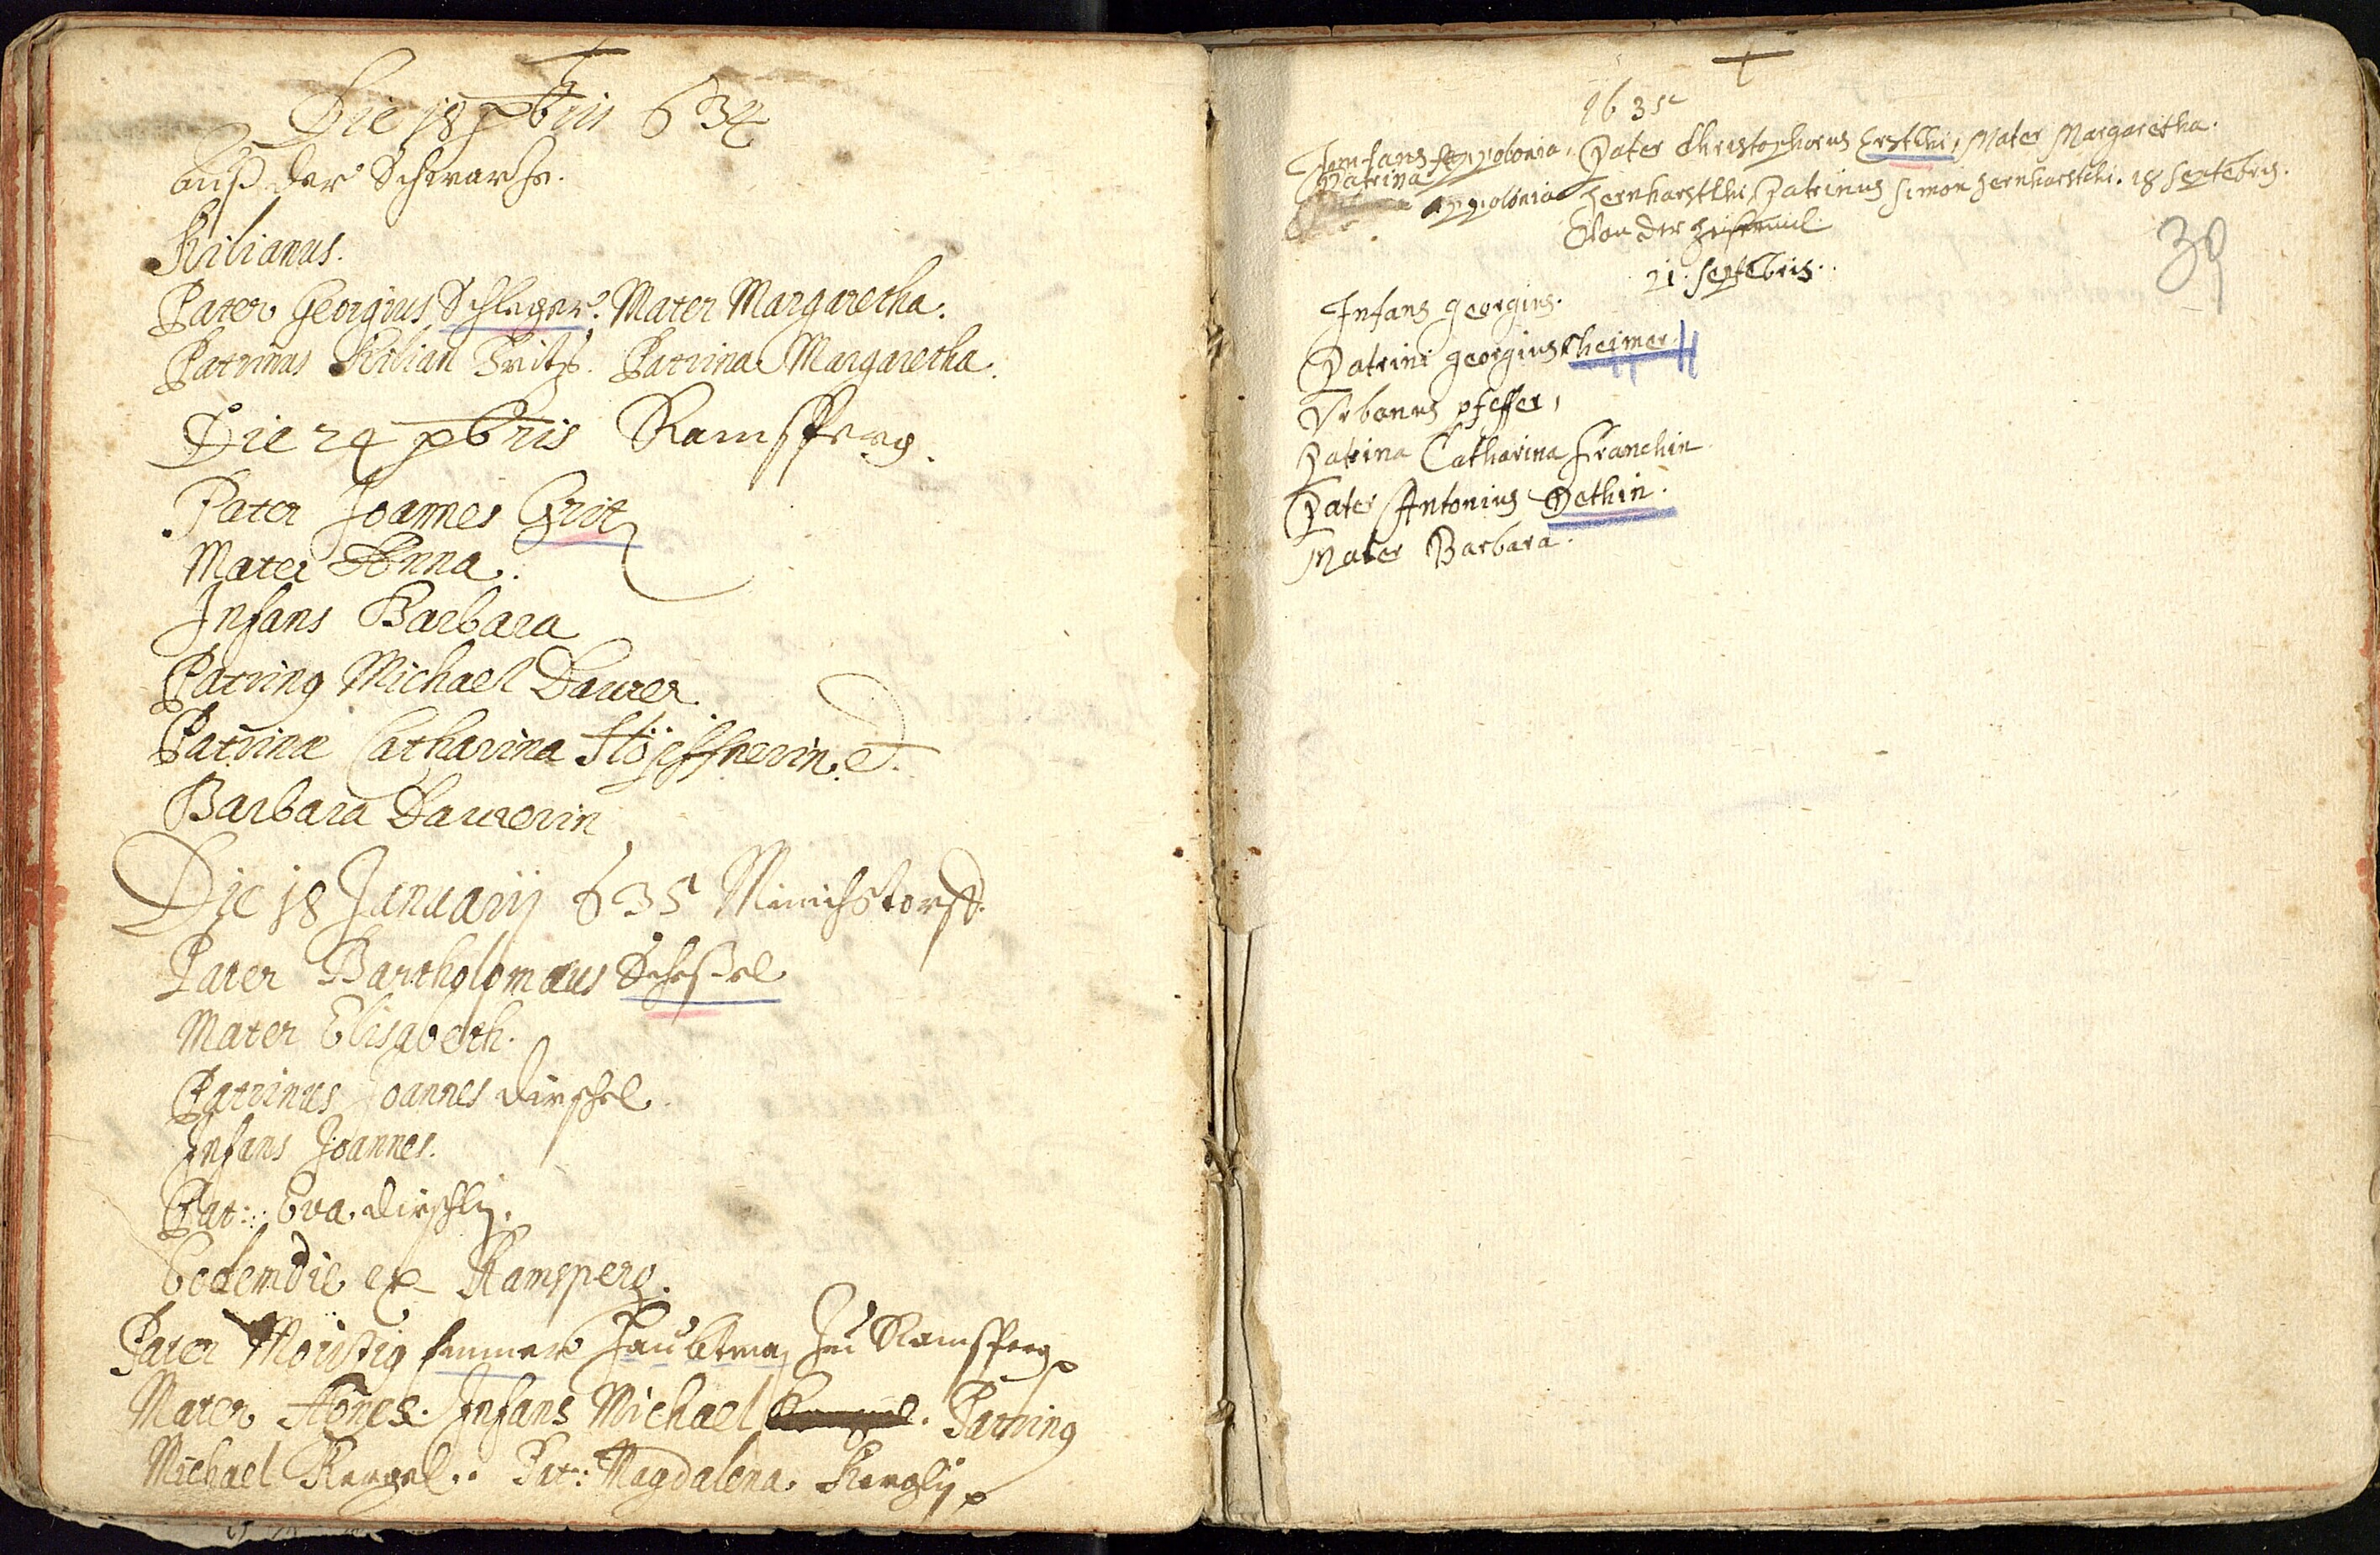 Die 18 Xbris 634
auß der Schwartz.
Kilianus.
Pater Georgius Schleger. Mater Margaretha.
Patrinus Kilian Fritz. Patrina Margaretha.
Die 24 Xbris Ramsperg.
Pater Joannes Grit
Mater Anna.
Infans Barbara
Patrinq Michael Daurer.
Patrinæ Catharina et
Barbara Daurerin
Die 18 Januarij 635 Minichstorff.
Pater Bartholomæus Scheßel
Mater Elisabeth.
Patrinus Joannes dirschel.
Infans Joannes.
Pat: Eva dirschlin.
Eodem die ex Ramsperg.
Pater zu Ramsperg
Mater Agnes. Infans Michael. Patrinq
Michael Kergel. Pat: Magdalena Kerglin
1635
Infans Appolonia. Pater Christophorus Mater Margaretha.
Patrina
Appolonia Patrinus Simon 18 Septebris.
Von der
21. Septebris.
Infans Georgius.
Patrini Georgius Kheimer
Vrbanus Pfeffer,
Patrina Catharina Franchin
Pater Antonius Dethin.
Mater Barbara.
39